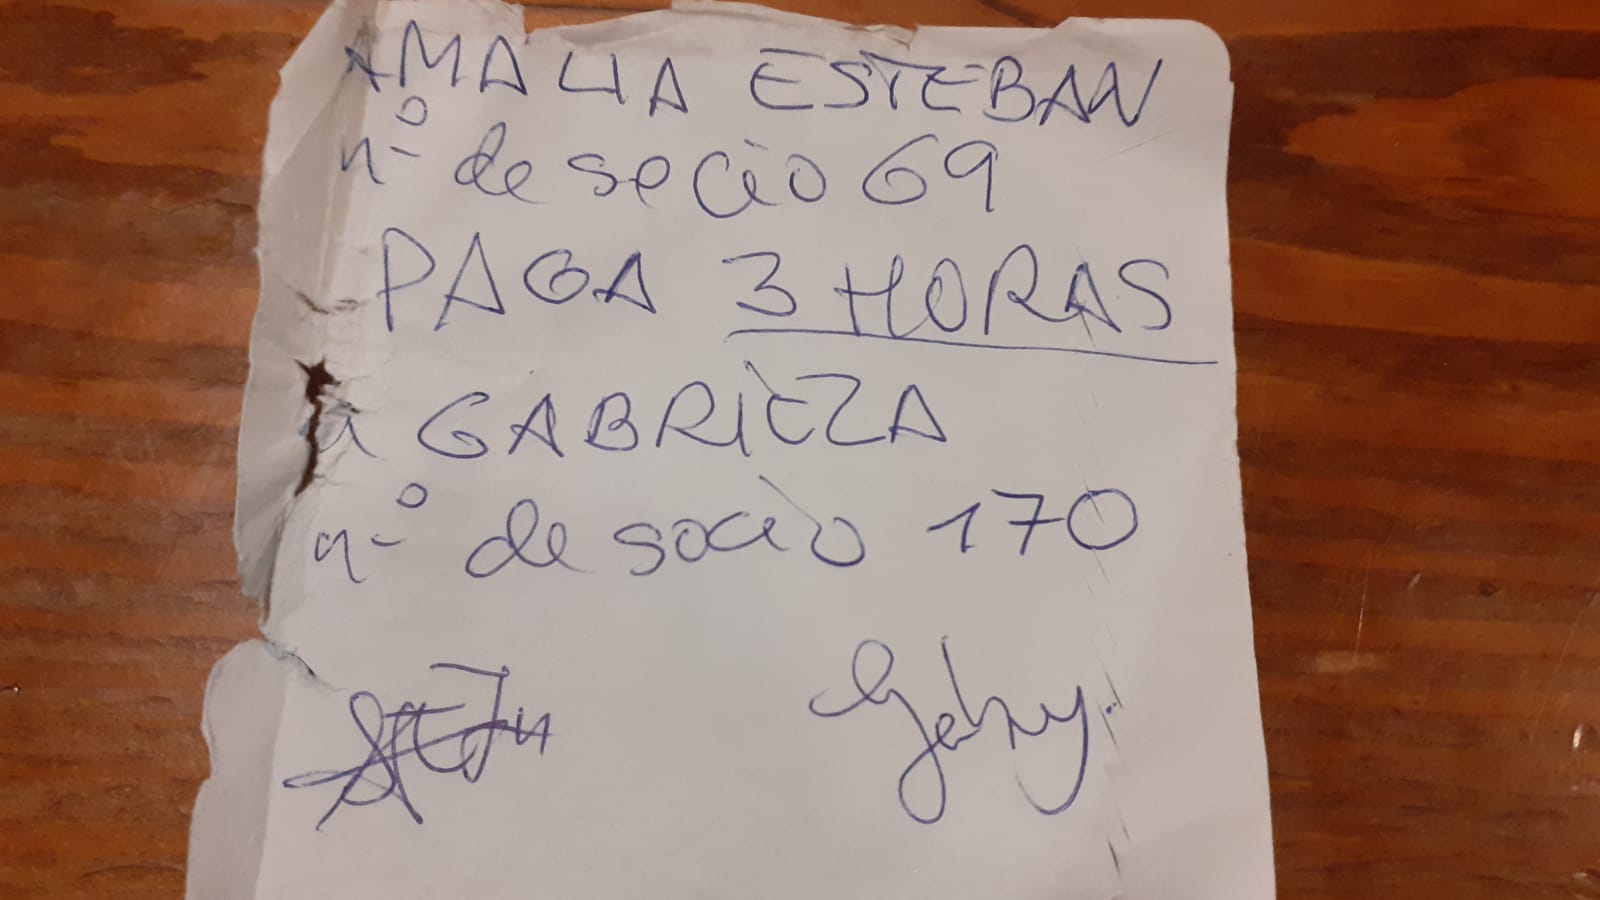 AMALIA ESTEBAN
nº de socio 69
PAGA 3 HORAS
a GABRIELA
nº de socio 170
Gaby.